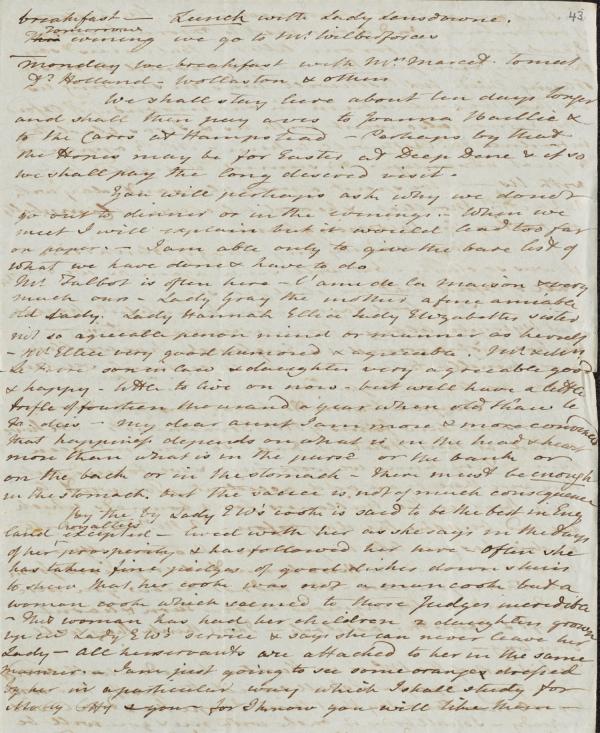 breakfast — Lunch with Lady Lansdowne.
43
Tomorrow
This evening we go to Mr. Wilberforces
Monday we breakfast with Mrs Marcet to meet
Dr Holland — Wollaston & others
We shall stay here about ten days longer
and shall then pay a visit to Joanna Baillie &
to the Carrs at Hampstead Perhaps by that
the Hopes may be for Easter at Deep Dene & if so
we shall pay the long desired visit.
You will perhaps ask why we do not
go out to dinner or in the evenings — When we
meet I will explain but it would lead too far
on paper. — I am able only to give the bare list of
what we have done & have to do
Mr. Talbot is often here — l'ami de la maison & very
much ours — Lady Grey the mother a fine amiable
old Lady. Lady Hannah Ellice Lady Elizabeths sister
not so agreeable person mind or manner as herself
— Mr Ellice very good humored & agreeable.
son in law & daughter very agreeable good
& happy — little to live on now — but will have a little
trifle of fourteen thousand a year when old
dies — My dear aunt I am more & more convinced
that happiness depends on what is in the head & heart
more than what is in the purse or the bank or
on the back or in the stomach — There must be enough
in the stomach. but the sauce is not of much consequence
By the by Lady EWs cook is said to be the best in Eng
royalties
land excepted — lived with her as she says in the days
of her prosperity & has followed her here — often she
has taken fine judges of good dishes down stairs
to shew that her cook was not a man cook but a
woman cook which seemed to those Judges incredible
— This woman has had her children & daughters grown
up in Lady EWs service & says she can never leave her
Lady — all her servants are attached to her in the same
manner. I am just going to see some oranges dressed
by her in a particular way which I shall study for
& you — for I know you will like them —